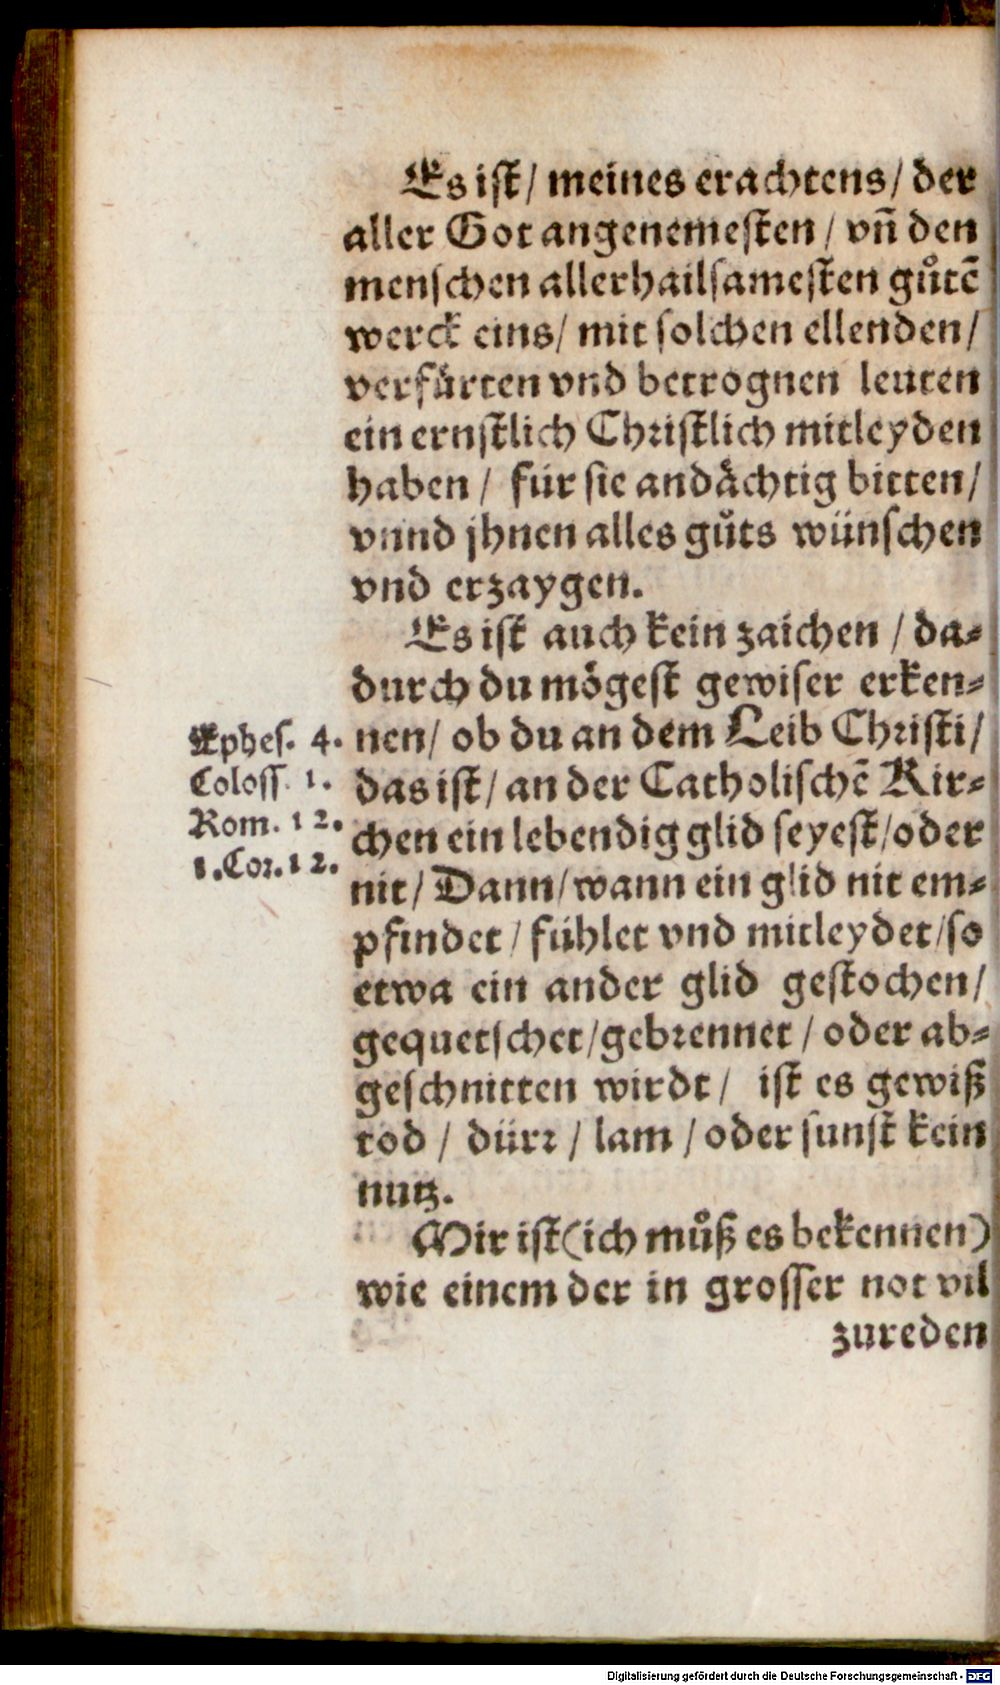 Es iſt / meines erachtens / der
aller Got angenemeſten / vñ den
menſchen allerhailſameſten gůtẽ
werck eins / mit ſolchen ellenden /
verfürten vnd betrognen leuten
ein ernſtlich Chriſtlich mitleyden
haben / für ſie andåchtig bitten /
vnnd jhnen alles gůts wünſchen
vnd erzaygen.
Es iſt auch kein zaichen / da⸗
durch du mögeſt gewiſer erken⸗
nen / ob du an dem Leib Chriſti /
das iſt / an der Catholiſchẽ Kir⸗
chen ein lebendig glid ſeyeſt / oder
nit / Dann / wann ein glid nit em⸗
pfindet / fühlet vnd mitleydet / ſo
etwa ein ander glid geſtochen /
gequetſchet / gebrennet / oder ab⸗
geſchnitten wirdt / iſt es gewiß
tod / dürr / lam / oder ſunſt kein
nutz.
Mir iſt (ich můß es bekennen)
wie einem der in groſſer not vil
zureden
Ephes. 4.
Coloſſ. 1.
Rom. 12.
1. Cor. 12.
Digitalisierung gefördert durch die Deutsche Forschungsgemeinschaft - DFG